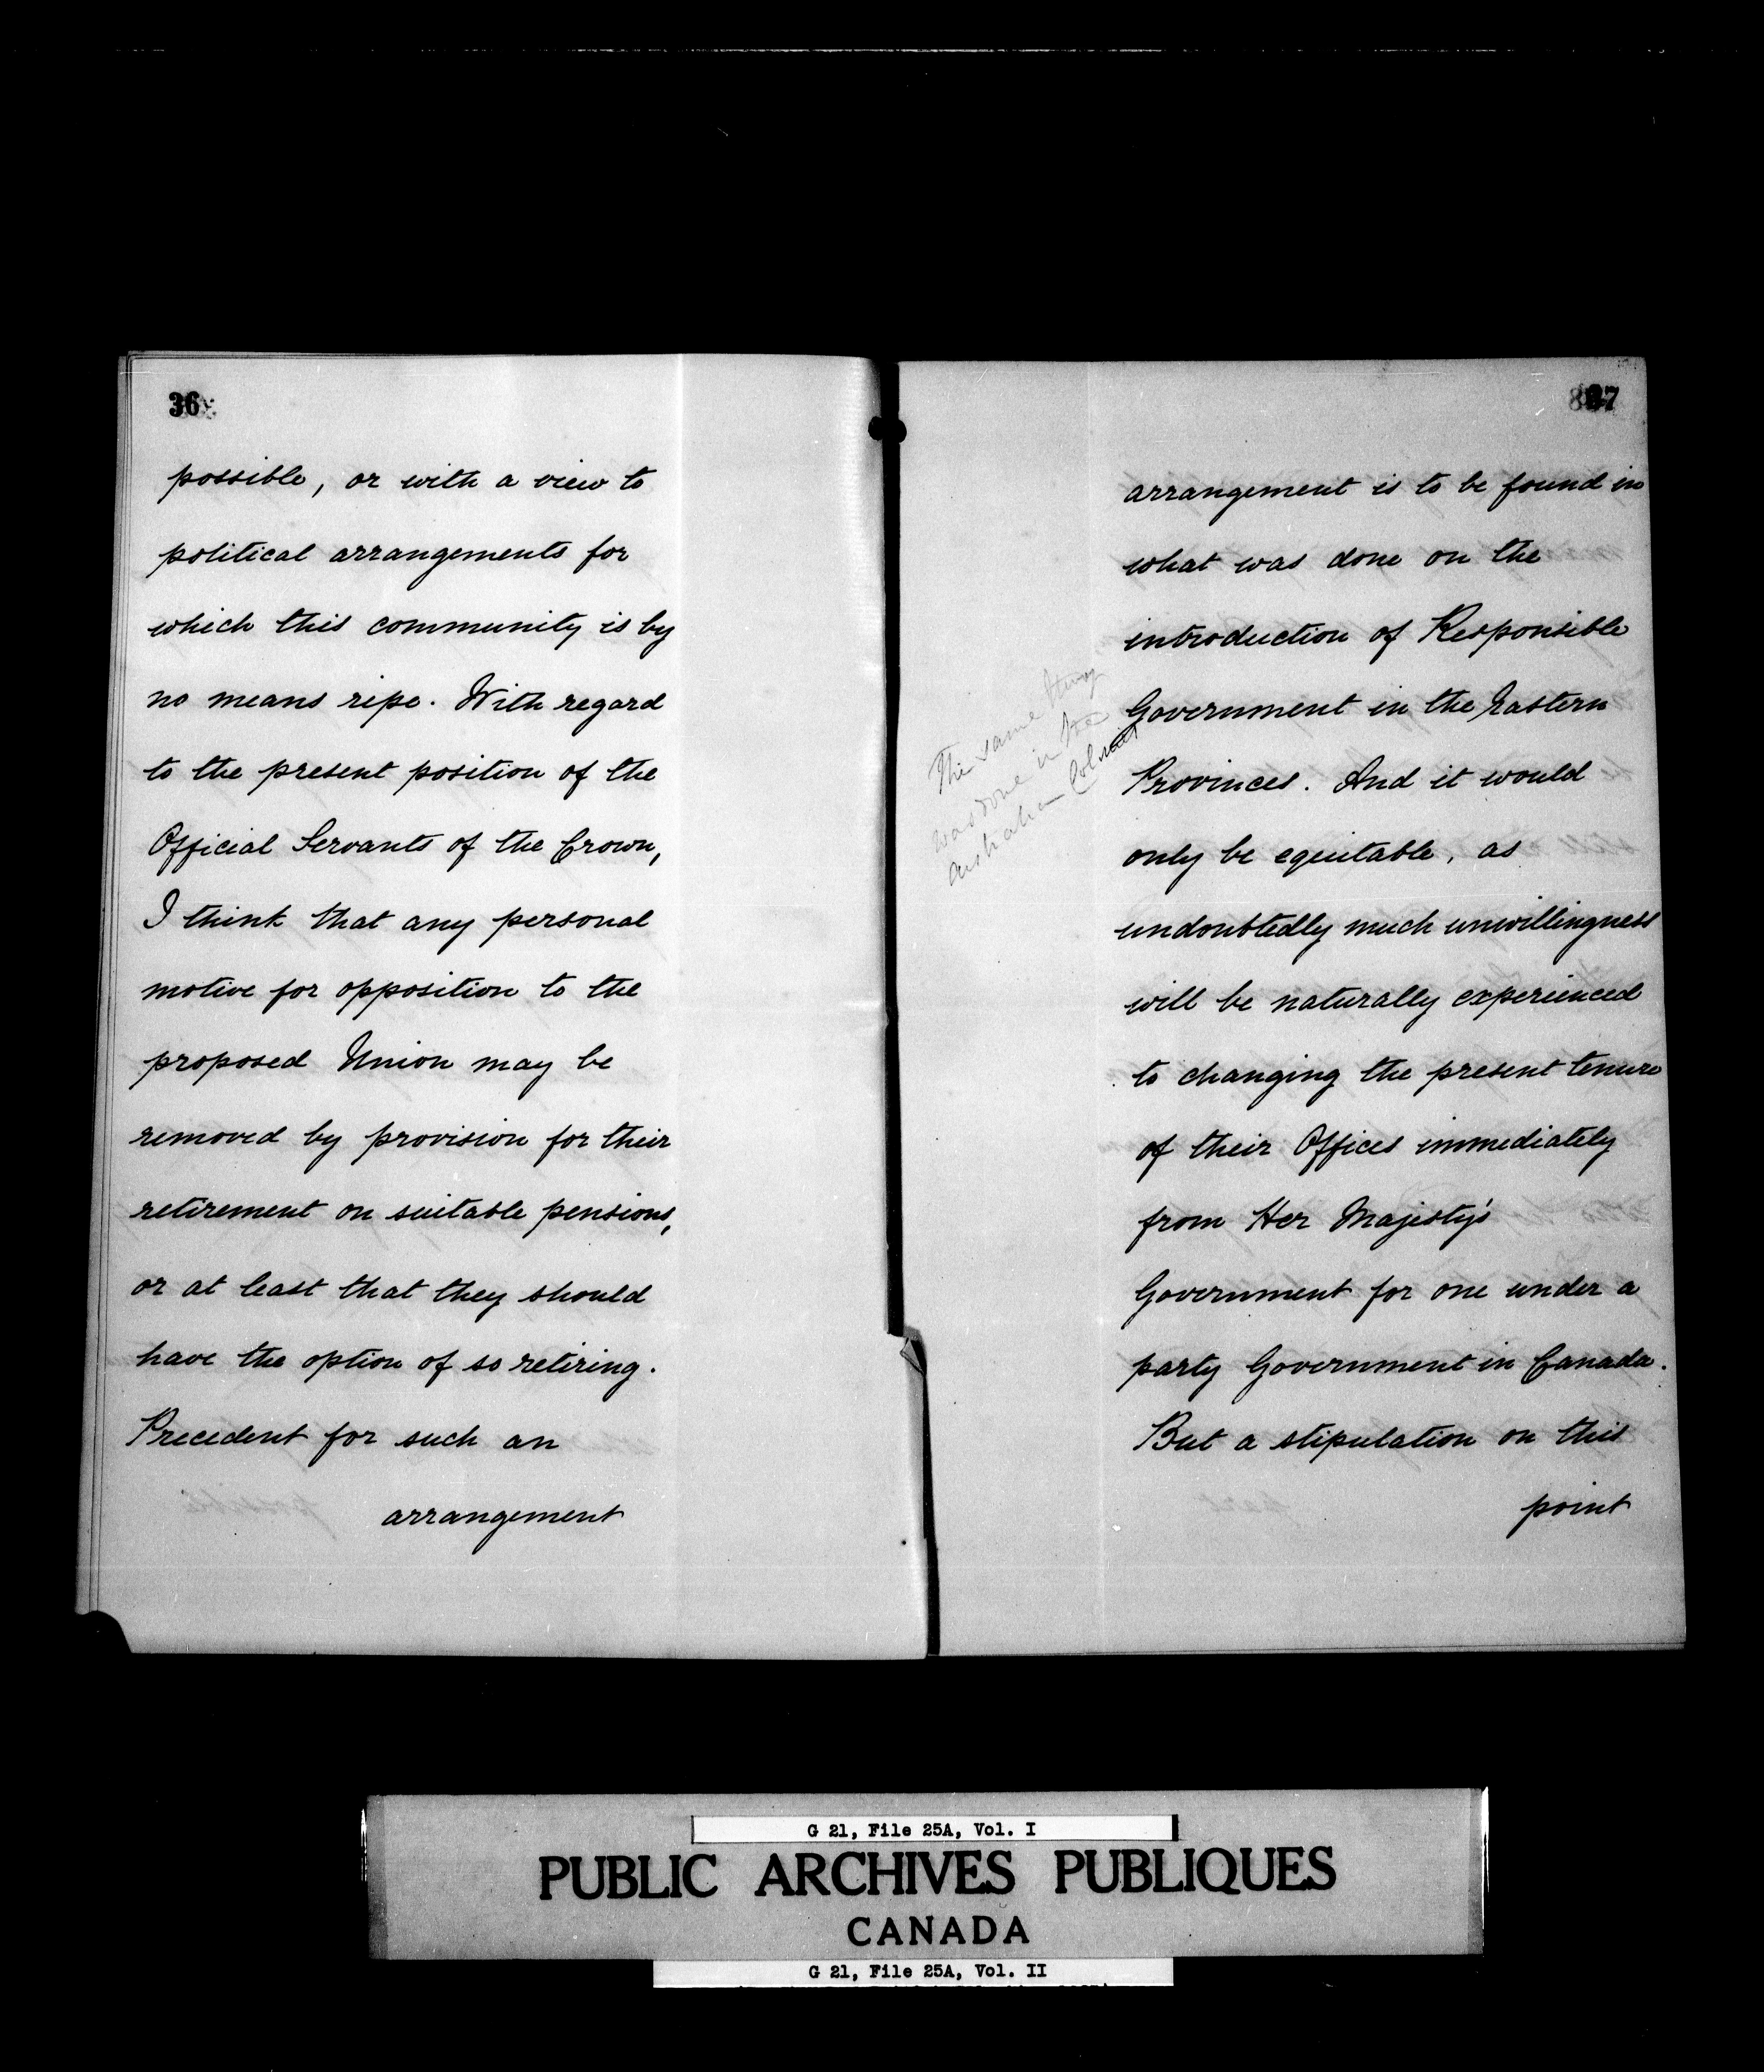 36
possible, or with a view to
political arrangements for
which this community is by
no means ripe. With regard
to the present position of the
Official Servants of the Crown,
I think that any personal
motive for opposition to the
proposed Union may be
removed by provision for their
retirement on suitable pensions,
or at least that they should
have the option of so retiring.
Precedent for such an
arrangement
37
The same thing
was done in the
Australian Colonies
arrangement is to be found in
what was done on the
introduction of Responsible
Government in the Eastern
Provinces. And it would
only be equitable, as
undoubtedly much unwillingness
will be naturally experienced
to changing the present tenure
of their Offices immediately
from Her Majesty's
Government for one under a
party Government in Canada.
But a stipulation on this
point
G 21, File 25A, Vol. I
PUBLIC ARCHIVES PUBLIQUES
CANADA
G 21, File 25A, Vol. II